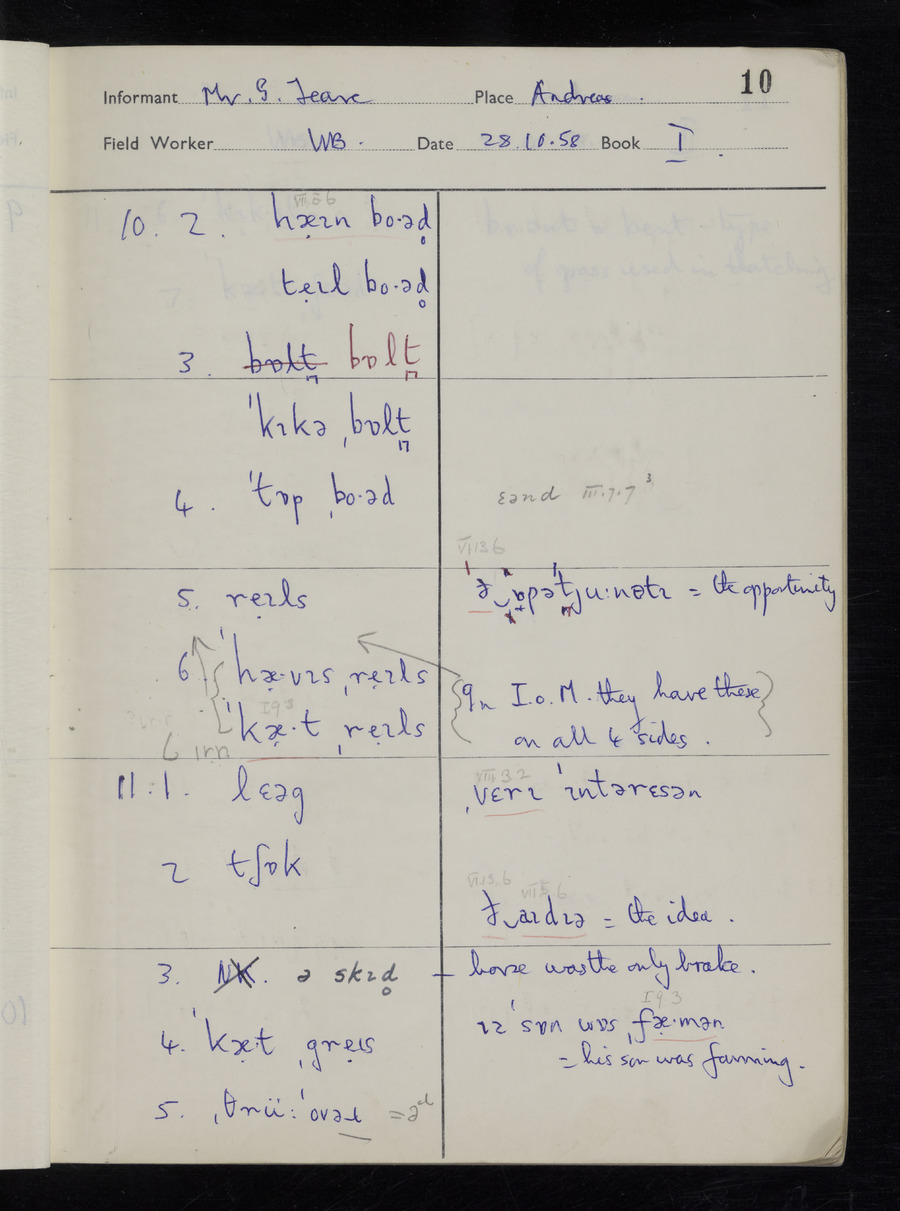 10
Informant Mr. G. Teare Place Andreas .
Field Worker WB . Date 28.10.58 Book I .
10. 2. hæɪn bo·əd̥
teɪl bo·əd̥
3. bɒlt̪ bɒlt̪
ˈkɪkə ˌbɒlt̪
4. ˈtɒp ˌbo·əd
ɛənd III.7.7³
VI.13.6
5. reɪls
= the opportunity
6 ˈhæ·vɪs ˌreɪls
I 9 3
ˈkæ·t ˌreɪls
6 ɪrn
In I.o.M. they have these
on all 4 sides .
11 : 1. lɛəg
VIII 3 2
ˌvɛrɪ ˈɪntərɛsən
2 tʃɒk
VI.13.6 VII 5.6
ð‿aɪdɪə = the idea .
3. NK. ə skɪd̥ — horse was the only brake .
I 9 3
4. ˈkæt ˌgreɪs
ɪz ˈsɒn wɒs ˌfæ·mən
= his son was farming .
5. ˌθrüː ˈovəɫ = əd